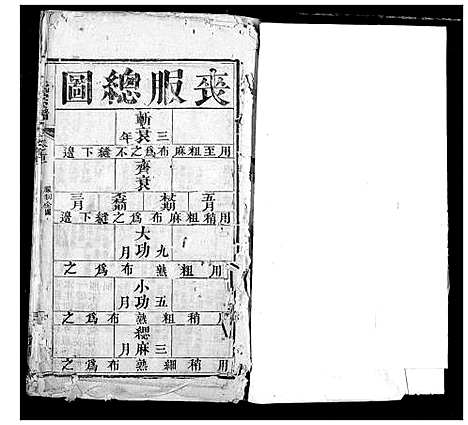 喪服總圖
斬衰三年
用至粗麻布為之不縫下邊
齊衰
五月 杖期 不杖期 三月
用稍粗麻布為之縫下邊
大功九月
用粗熟布為之
小功五月
用稍粗熟布為之
緦麻三月
用稍細熟布為之